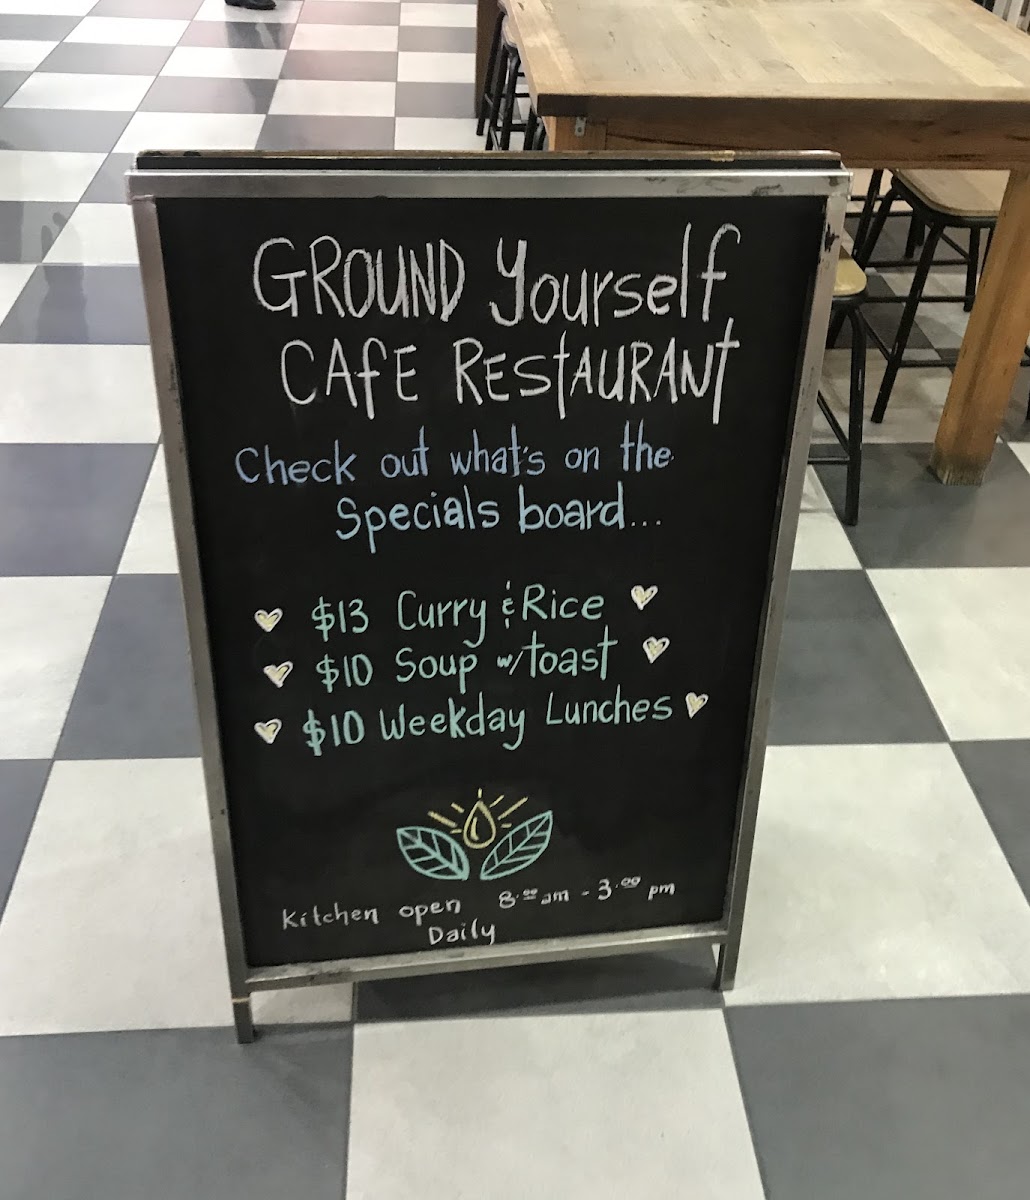 GROUND Yourself
CAfE RESTAURANT
Check out what's on the
Specials board...
$13 Curry & Rice
$10 Soup w/ toast
$10 Weekday Lunches
Kitchen open 8.00 am - 3.00 pm
Daily